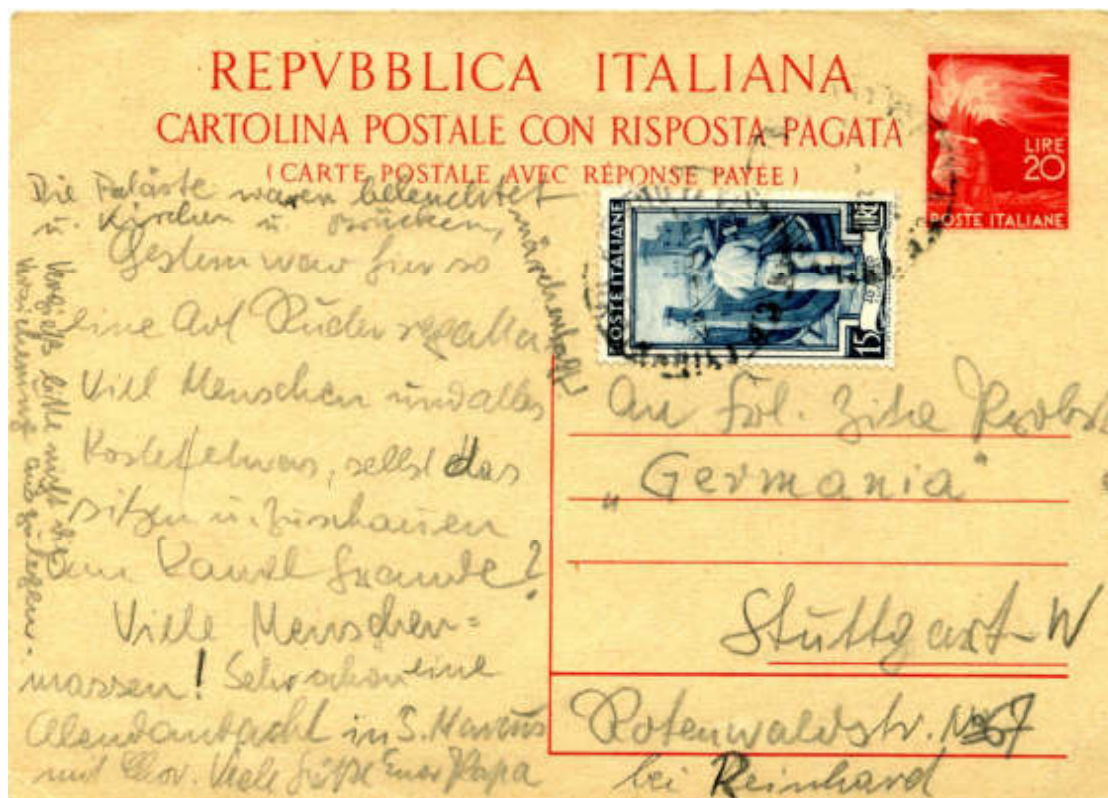 REPVBBLICA ITALIANA
CARTOLINA POSTALE CON RISPOSTA PAGATA
(CARTE POSTALE AVEC RÉPONSE PAYÉE)
LIRE
20
POSTE ITALIANE
POSTE ITALIANE
15
Die Paläste waren beleuchtet
u. Kirchen u. Brücken,
märchenhaft
Gestern war hier so
eine Art Ruderregatta
Viel Menschen und alles
kostet etwas, selbst das
sitzen u. zuschauen
am Kanal Grande?
Viele Menschen=
massen! Sehr schön eine
Abendandacht in S. Marcus
mit Chor. Viele Grüße Euer Papa
Vergiß bitte nicht die
Versicherung
An Frl. Zita
"Germania"
Stuttgart-W
Rotenwaldstr.
bei Reinhard